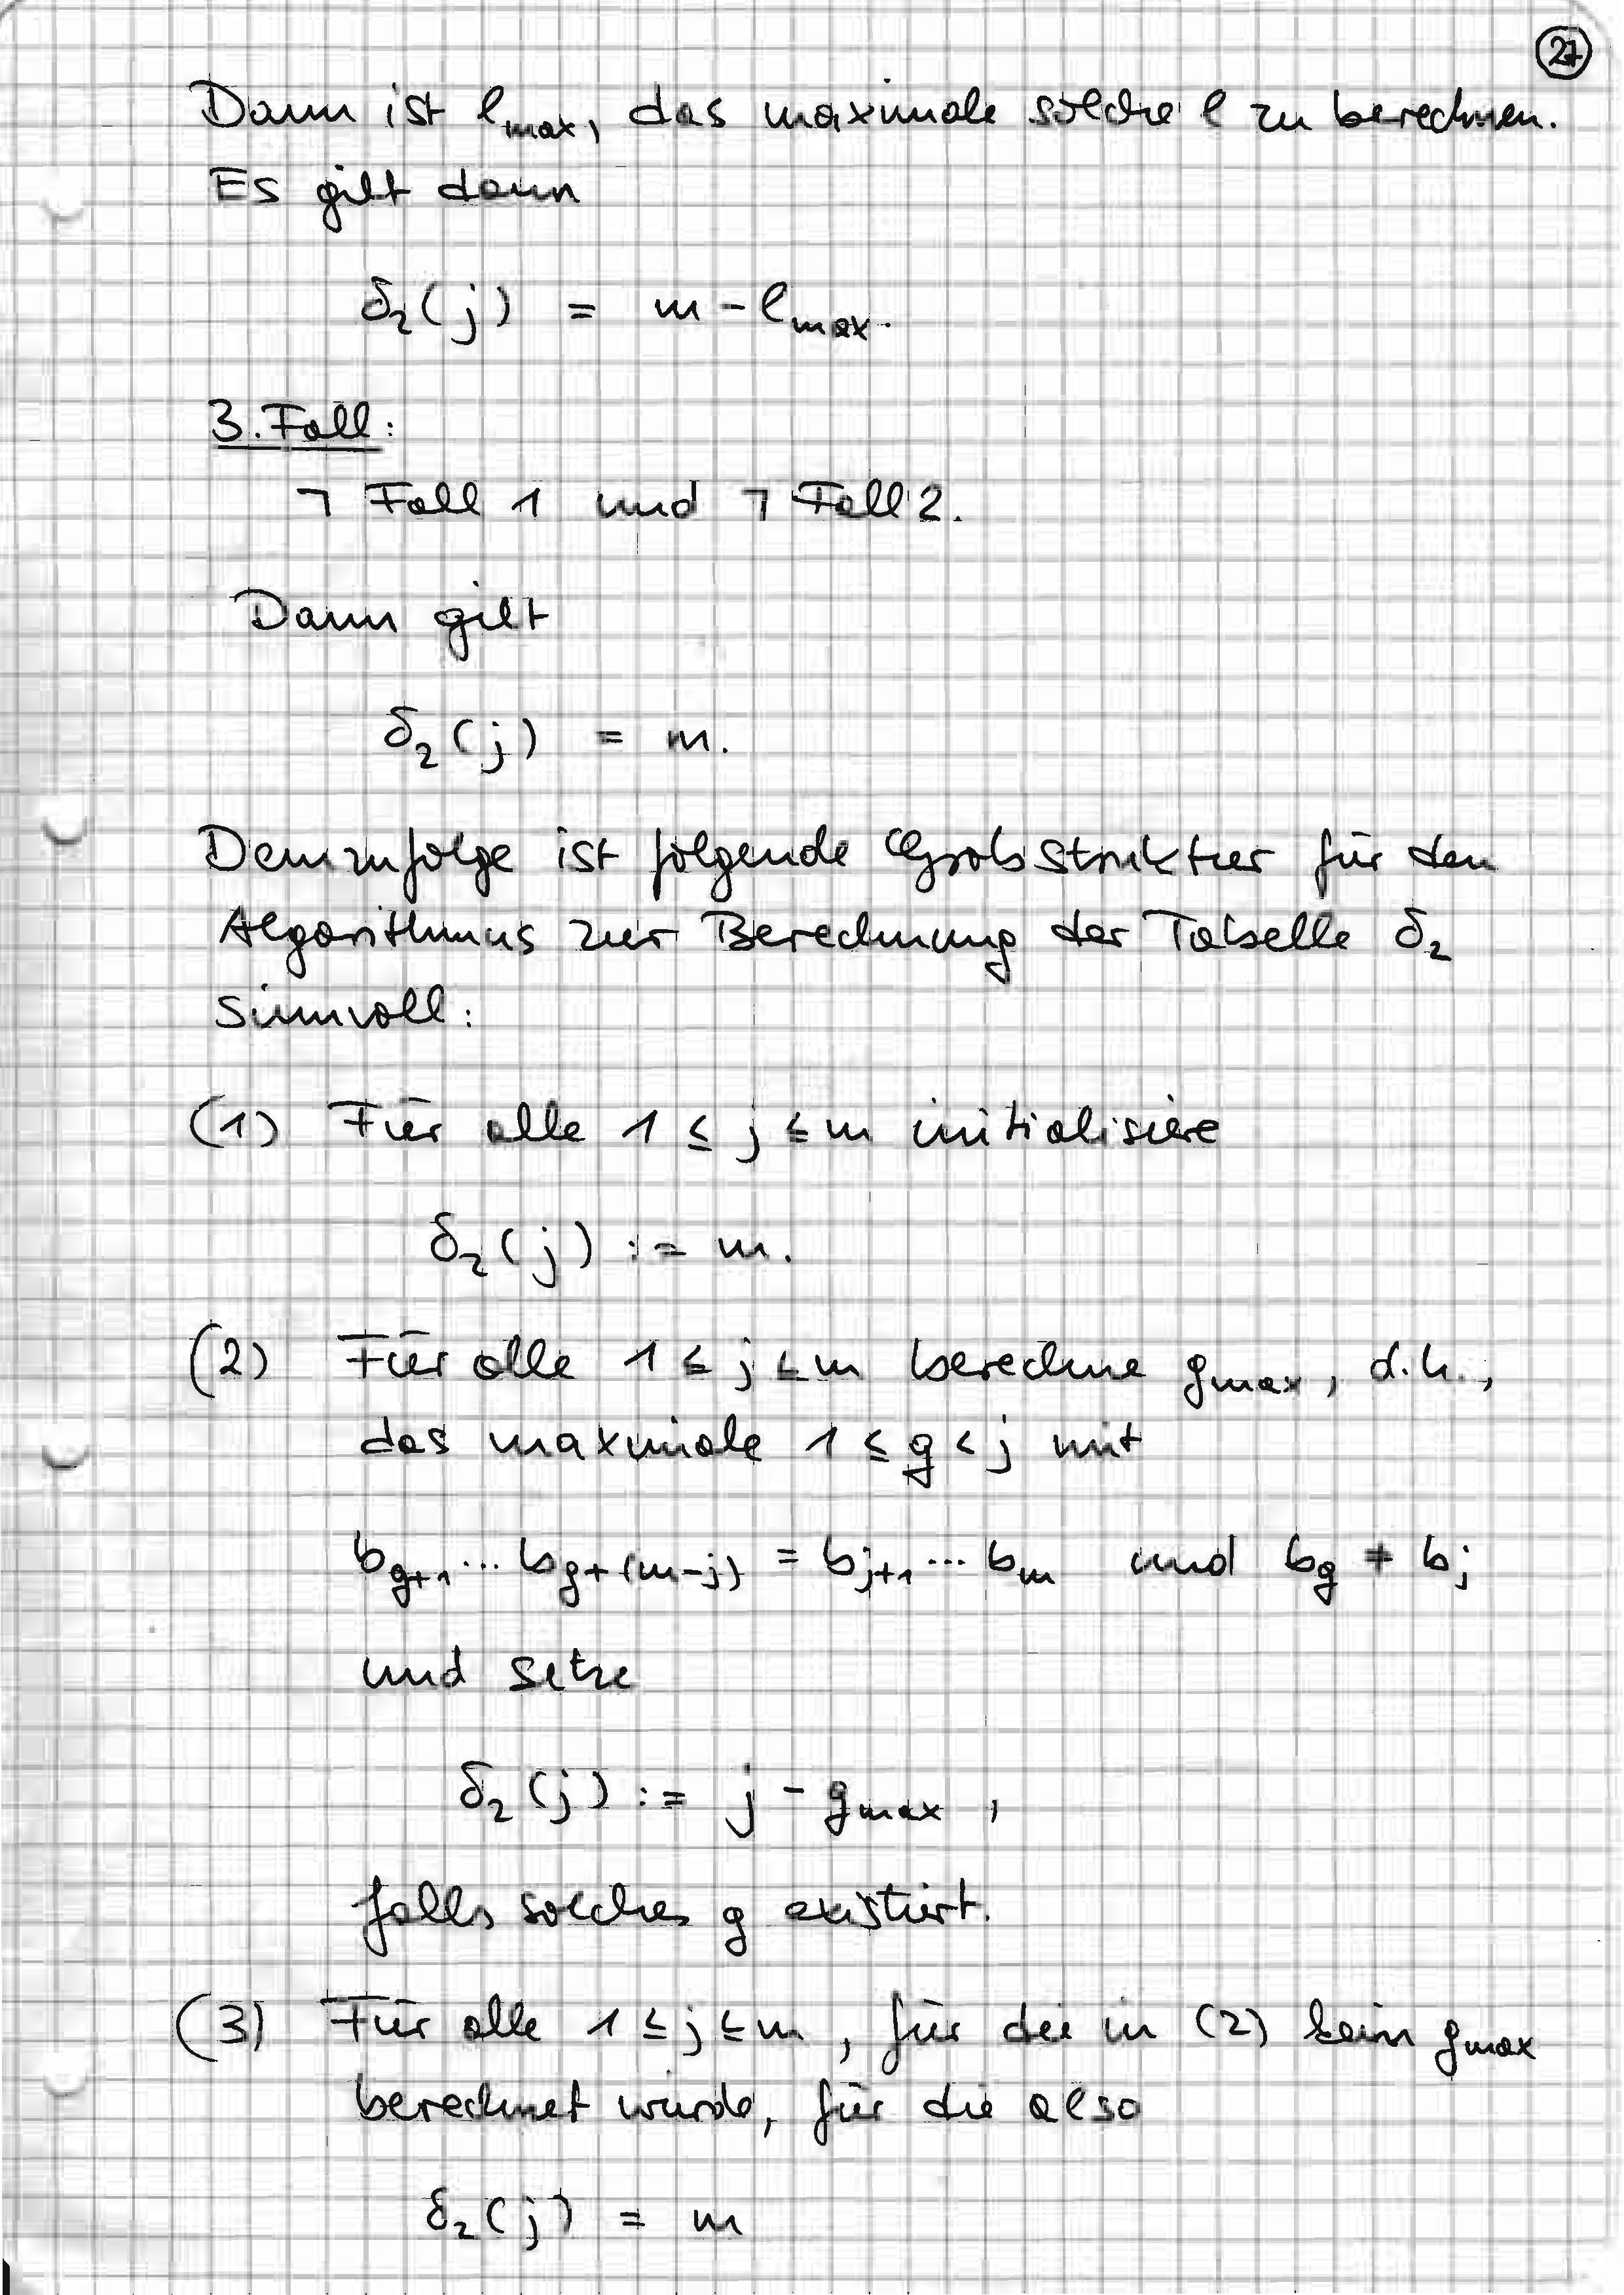 27
Dann ist ℓ_max, das maximale solche ℓ zu berechnen.
Es gilt dann
δ₂(j) = m - ℓ_max.
3. Fall:
¬ Fall 1 und ¬ Fall 2.
Dann gilt
δ₂(j) = m.
Demzufolge ist folgende Grobstruktur für den
Algorithmus zur Berechnung der Tabelle δ₂
sinnvoll:
(1) Für alle 1 ≤ j ≤ m initialisiere
δ₂(j) := m.
(2) Für alle 1 ≤ j ≤ m berechne g_max, d.h.,
das maximale 1 ≤ g < j mit
b_{g+1} ... b_{g+(m-j)} = b_{j+1} ... b_m und b_g ≠ b_j
und setze
δ₂(j) := j - g_max,
falls solches g existiert.
(3) Für alle 1 ≤ j ≤ m, für die in (2) kein g_max
berechnet wurde, für die also
δ₂(j) = m